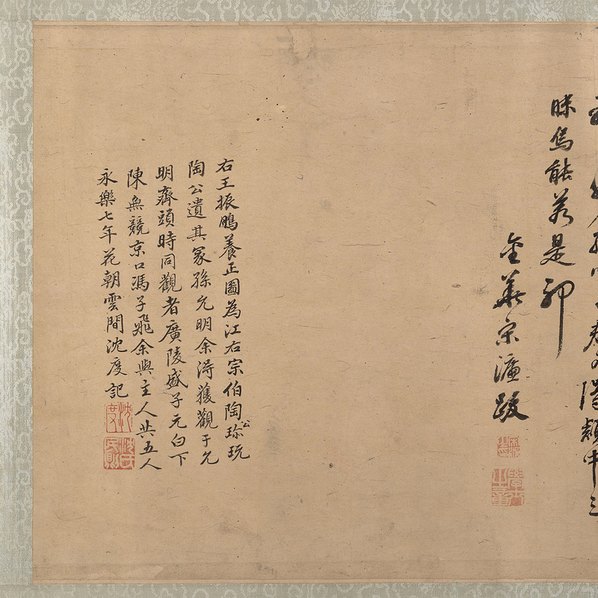 昧烏能若是耶
金華宋濂跋
右王振鵬養正圖為江右宗伯陶公珎玩
陶公遺其冢孫允明余得獲觀于允
明齋頭時同觀者廣陵盛子元白下
陳無競京口馮子飛余與主人共五人
永樂七年花朝雲間沈度記